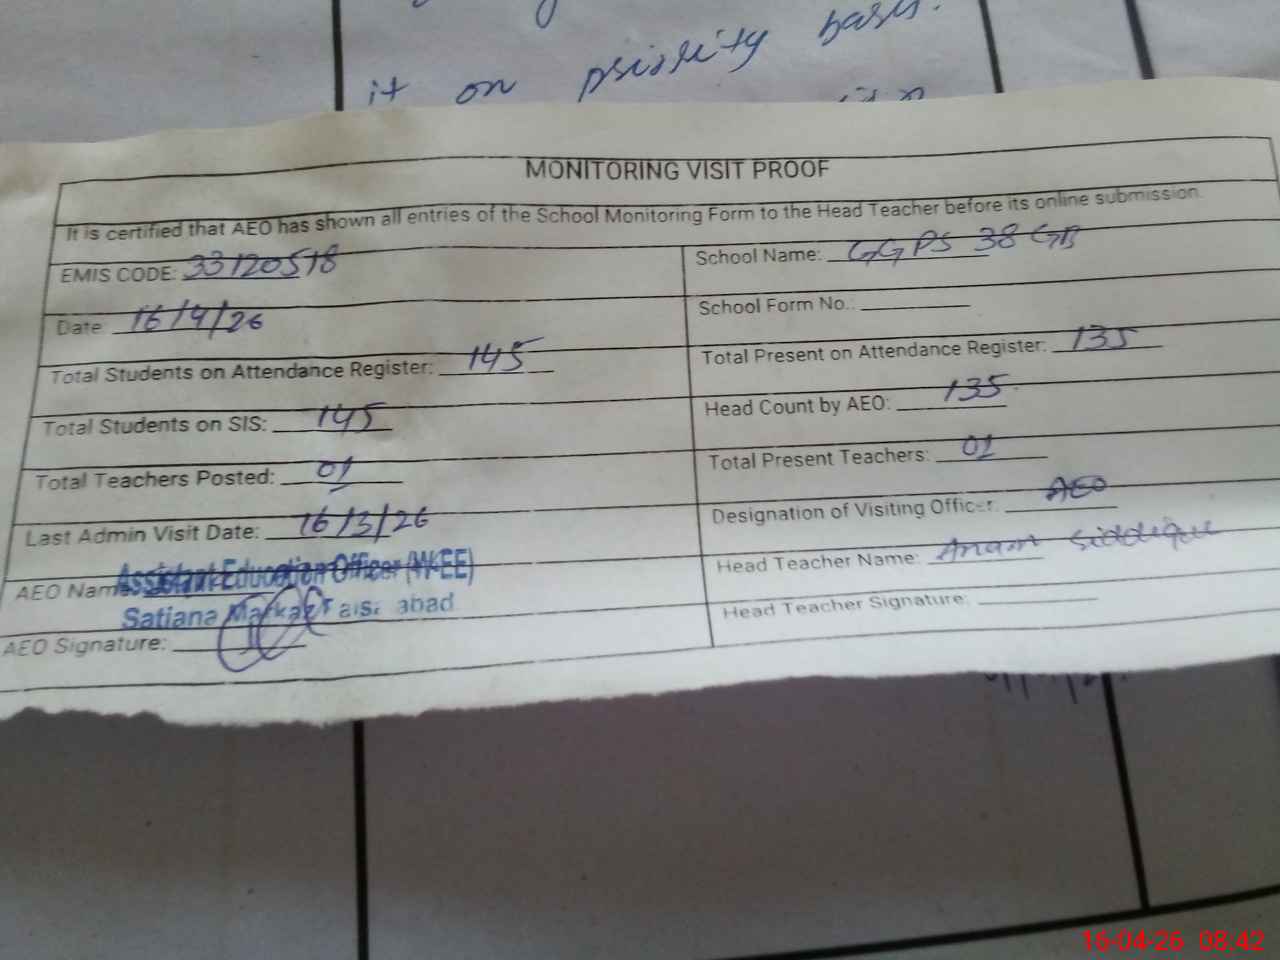 it on priority basis.
MONITORING VISIT PROOF
It is certified that AEO has shown all entries of the School Monitoring Form to the Head Teacher before its online submission.
EMIS CODE: 33120518
School Name: GGPS 38 GB
Date: 16/4/26
School Form No.:
Total Students on Attendance Register: 145
Total Present on Attendance Register: 135
Total Students on SIS: 145
Head Count by AEO: 135
Total Teachers Posted: 01
Total Present Teachers: 01
Last Admin Visit Date: 16/3/26
Designation of Visiting Officer: AEO
AEO Name Assistant Education Officer (W-EE)
Satiana Markaz Faisalabad
Head Teacher Name: Anam Siddique
AEO Signature:
Head Teacher Signature:
16-04-26 08:42